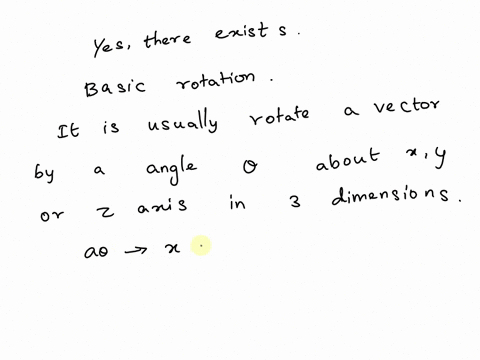 Yes, there exists.
Basic rotation.
It is usually rotate a vector
by a angle θ about x, y
or z axis in 3 dimensions.
aθ → x